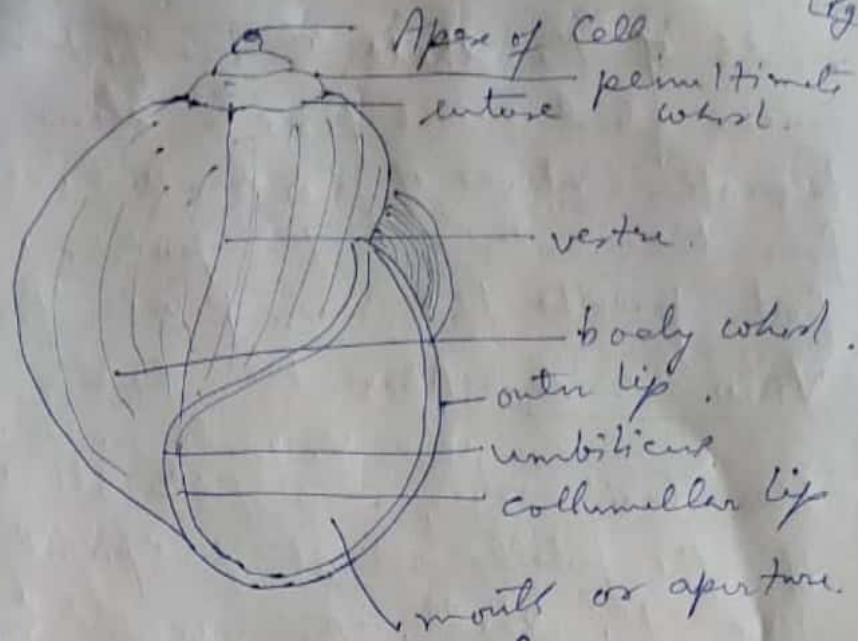 Apex of Cell
penultimate
suture whorl.
vestre.
body whorl.
outer lip.
umbilicus
collumellar lip
mouth or aperture.